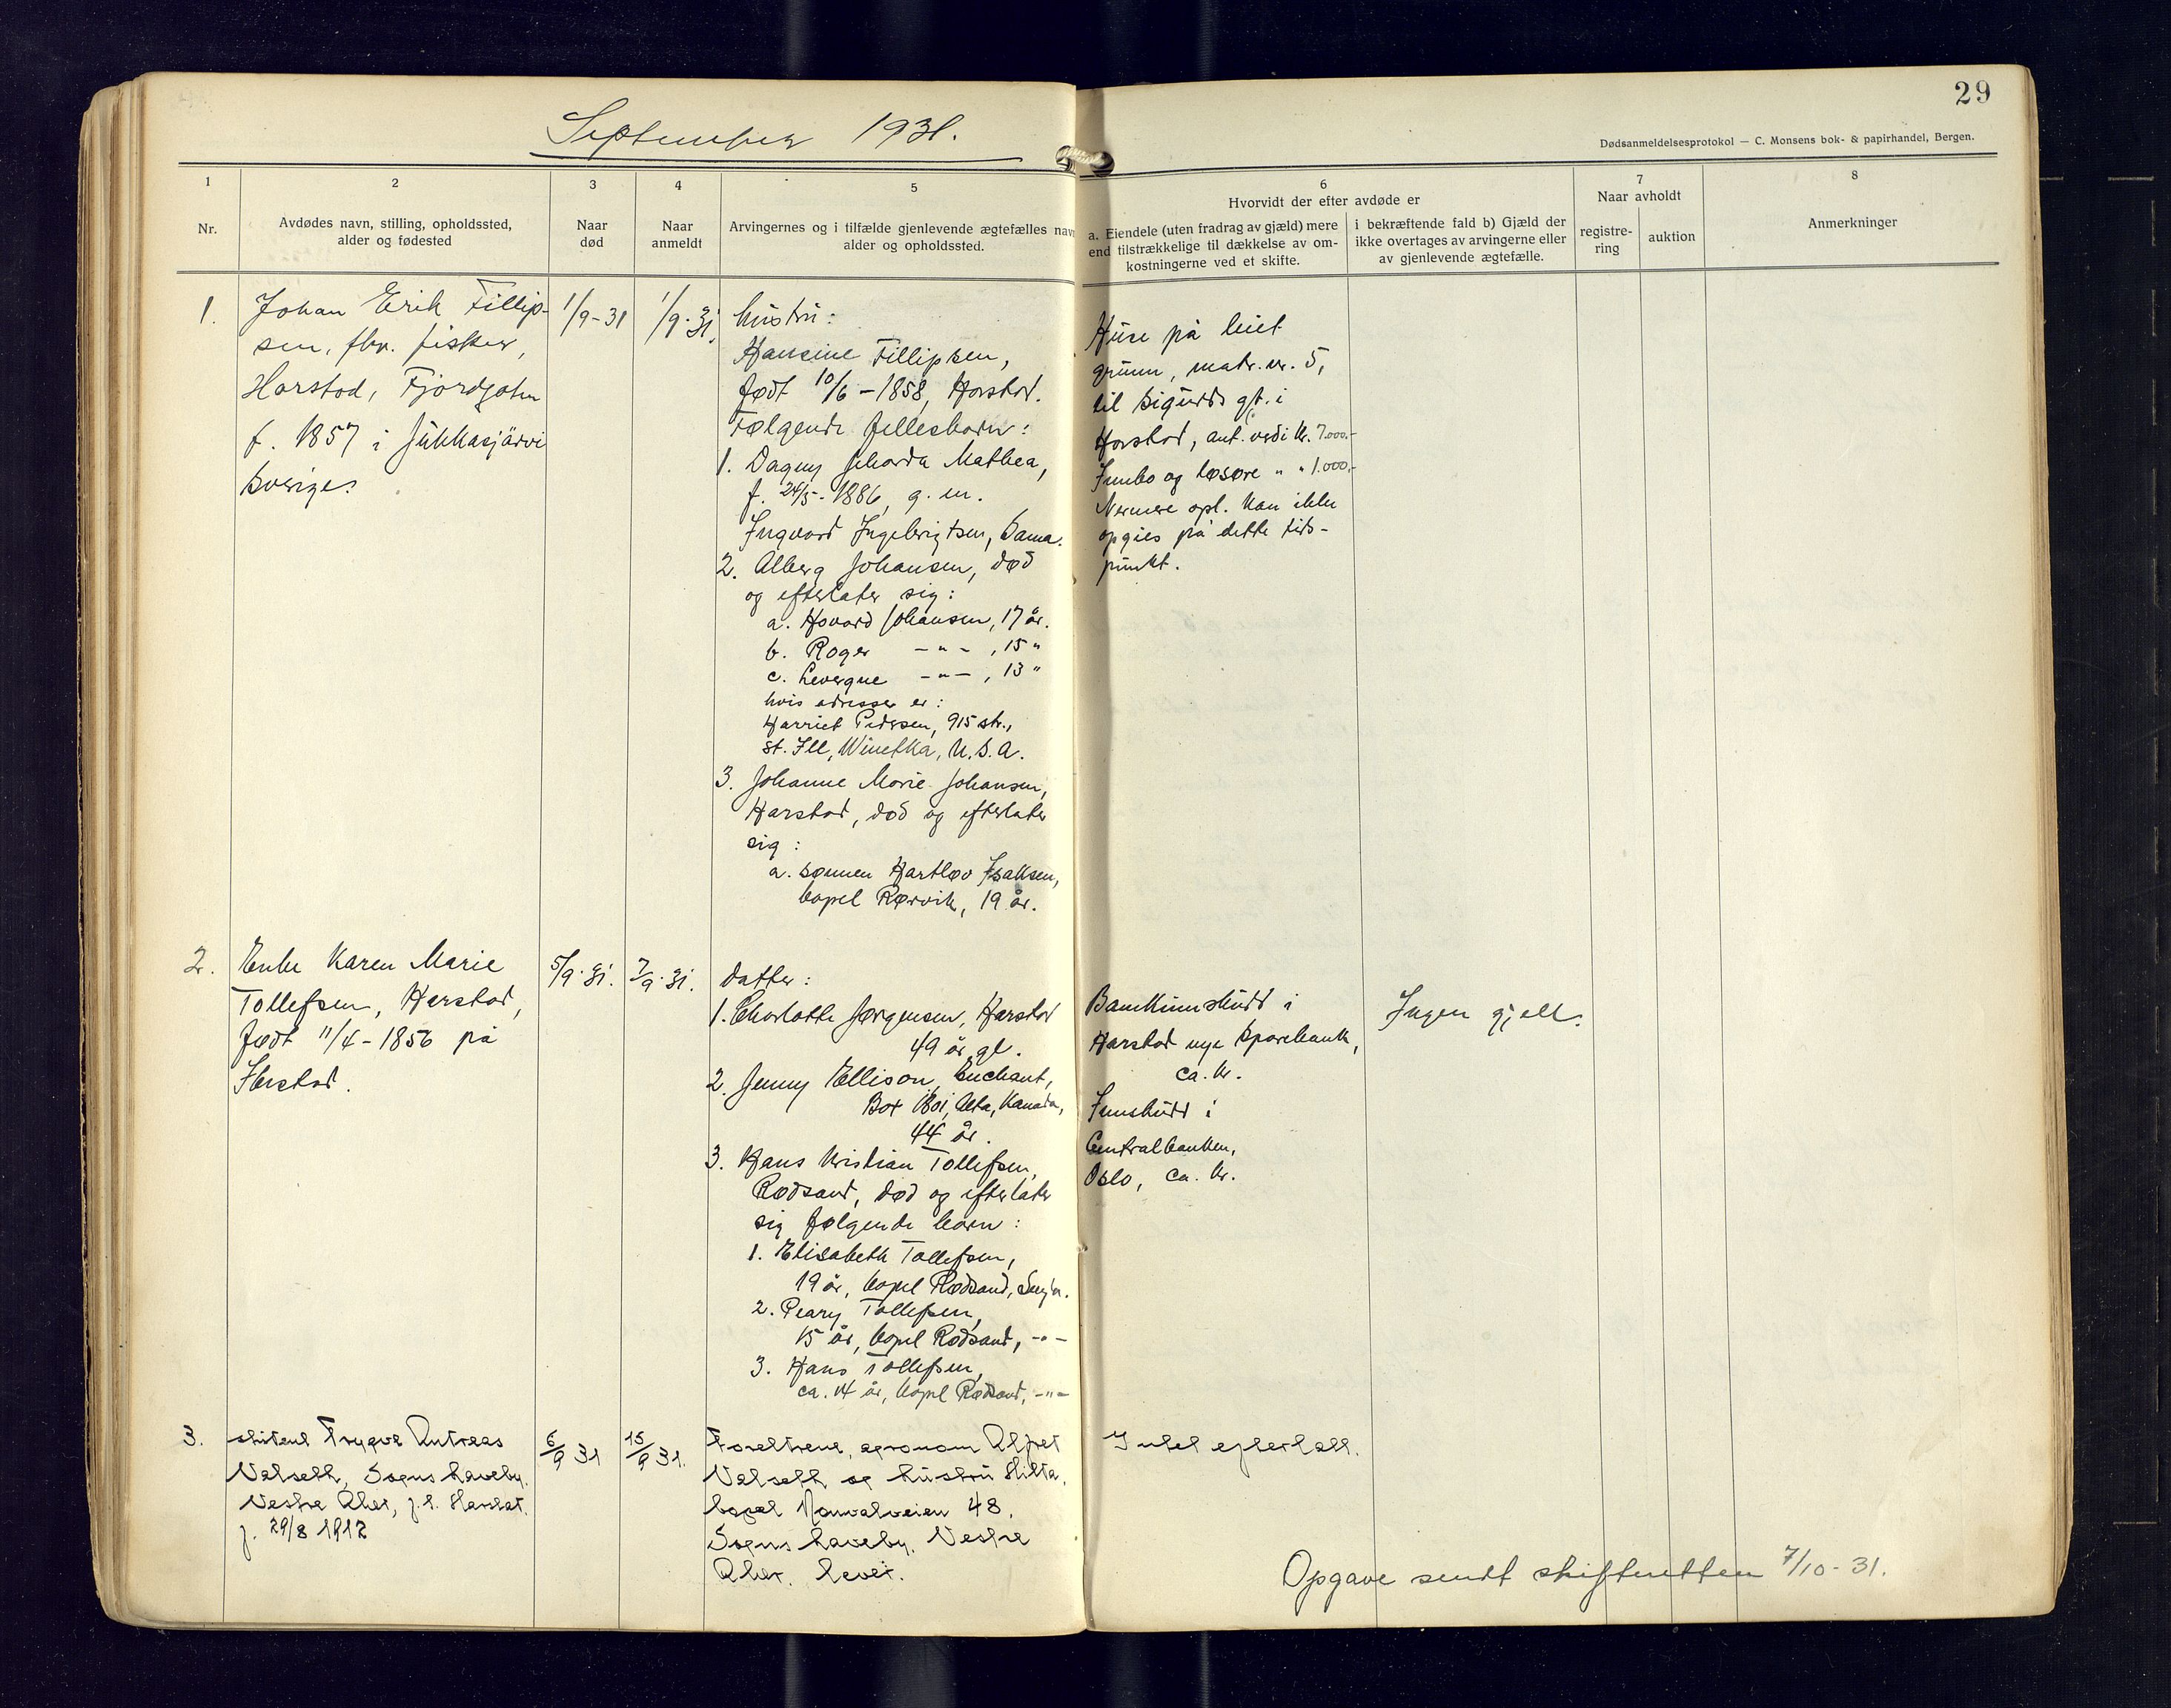 29
September 1931.
Dødsanmeldelsesprotokol — C. Monsens bok- & papirhandel, Bergen.
1
Nr.
2
Avdødes navn, stilling, opholdssted,
alder og fødested
3
Naar
død
4
Naar
anmeldt
5
Arvingernes og i tilfælde gjenlevende ægtefælles navn
alder og opholdssted.
6
Hvorvidt der efter avdøde er
a. Eiendele (uten fradrag av gjæld) mere
end tilstrækkelige til dækkelse av om-
kostningerne ved et skifte.
i bekræftende fald b) Gjæld der
ikke overtages av arvingerne eller
av gjenlevende ægtefælle.
7
Naar avholdt
registre-
ring
auktion
8
Anmerkninger
1.
Johan Erik Fillip-
sen, fhv. fisker,
Harstad, Fjordgaten
f. 1857 i Jukkasjärvi
Sverige.
1/9-31
1/9-31.
hustru:
Hansine Fillipsen,
født 10/6-1858, Harstad.
Følgende fellesbarn:
1. Dagny Jeharda Mathea,
f. 24/5-1886, g. m.
Ingvard Ingebrigtsen, Sama.
2. Alberg Johansen, død
og efterlater sig:
a. Hovard Johansen, 17 år.
b. Roger -"- , 15 "
c. Levergne -"- , 13 "
hvis adresser er:
Harriet Pedersen, 915 str.,
st. Ill, Winetka, U.S.A.
3. Johanne Marie Johansen,
Harstad, død og efterlater
sig:
a. sønnen Hartløv Isaksen,
bopel Rørvik, 19 år.
Huse på leiet
grunn, matr. nr. 5,
til Sigurds gt. i
Harstad, ant. verdi kr. 7.000.-
Innbo og løsøre " " 1.000.-
Nermere opl. kan ikke
opgies på dette tids-
punkt.
2.
Enke Karen Marie
Tollefsen, Harstad,
født 11/4-1856 på
Ibestad.
5/9-31.
7/9-31.
datter:
1. Charlotte Jørgensen, Harstad
49 år gl.
2. Jenny Ellison, Enchant,
Box 1801, Alta, Kanada,
44 år.
3. Hans Kristian Tollefsen,
Rødsand, død og efterlater
sig følgende barn:
1. Elisabeth Tollefsen,
19 år, bopel Rødsand, Senja.
2. Peary Tollefsen,
15 år, bopel Rødsand, -"-
3. Hans Tollefsen,
ca. 14 år, bopel Rødsand, -"-
Bankinnskudd i
Harstad nye Sparebank,
ca. kr.
Innskudd i
Centralbanken,
Oslo, ca. kr.
Ingen gjeld.
3.
student Trygve Andreas
Velseth, Sogns haveby.
Vestre Aker, f. i. Harstad.
f. 29/8 1912
6/9 31
15/9 31.
Foreldrene, agronom Alfred
Velseth og hustru Hilda,
bopel 48,
Sogns haveby. Vestre
Aker. lever.
Intet efterlatt.
Opgave sendt skifteretten 7/10-31.